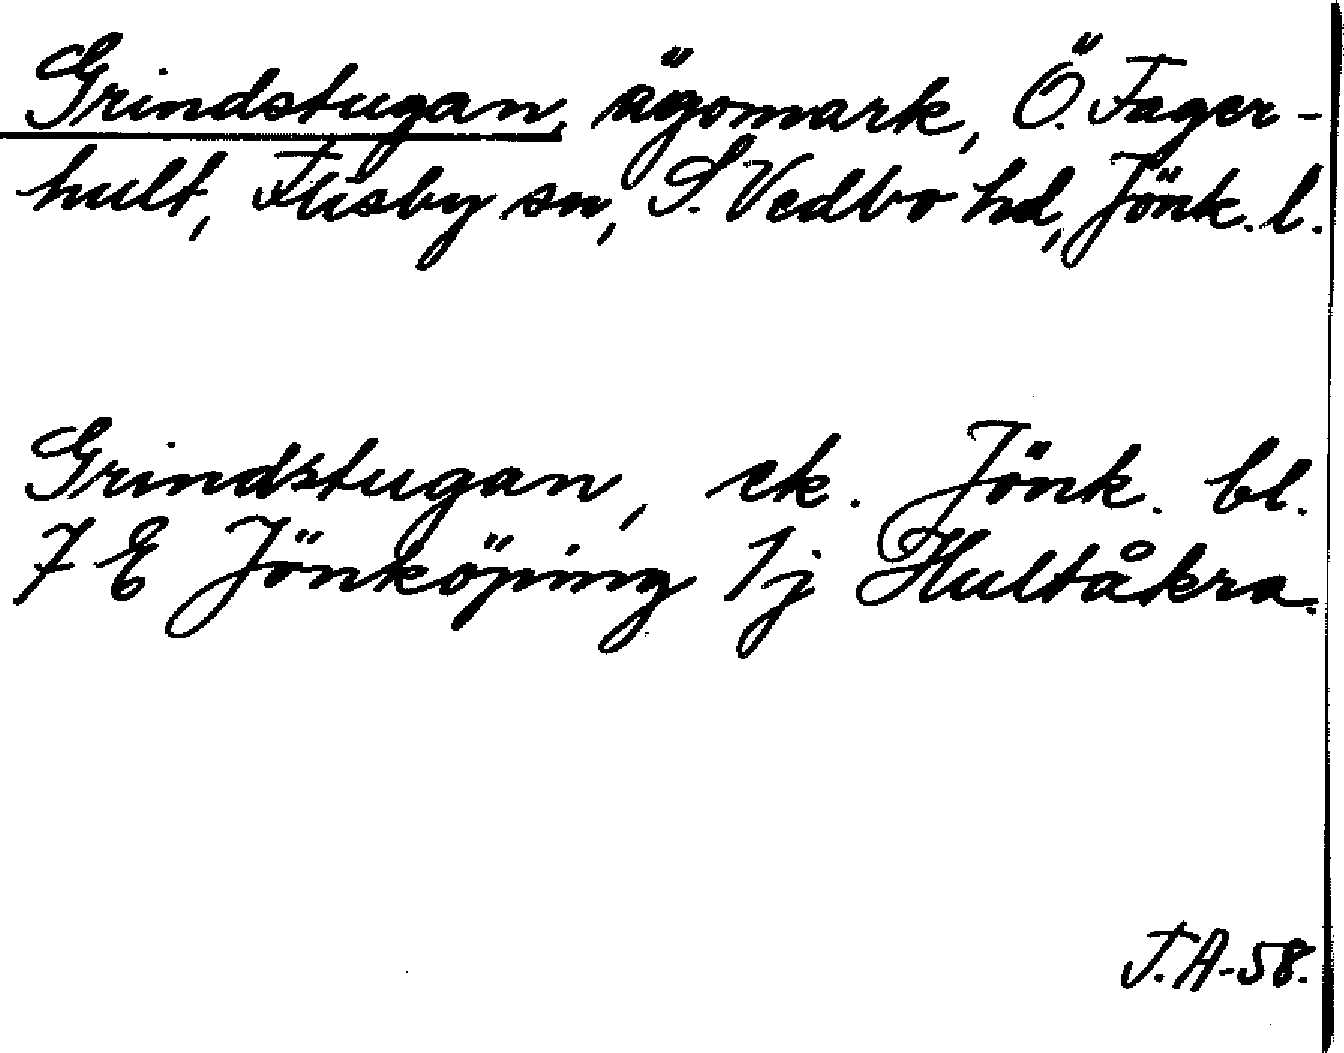 Grindstugan, ägomark, Ö. Fager-
hult, Flisby sn, S. Vedbo hd, Jönk. l.
Grindstugan, ek. Jönk. bl.
7 E Jönköping 1j Hultåkra.
T.A-58.